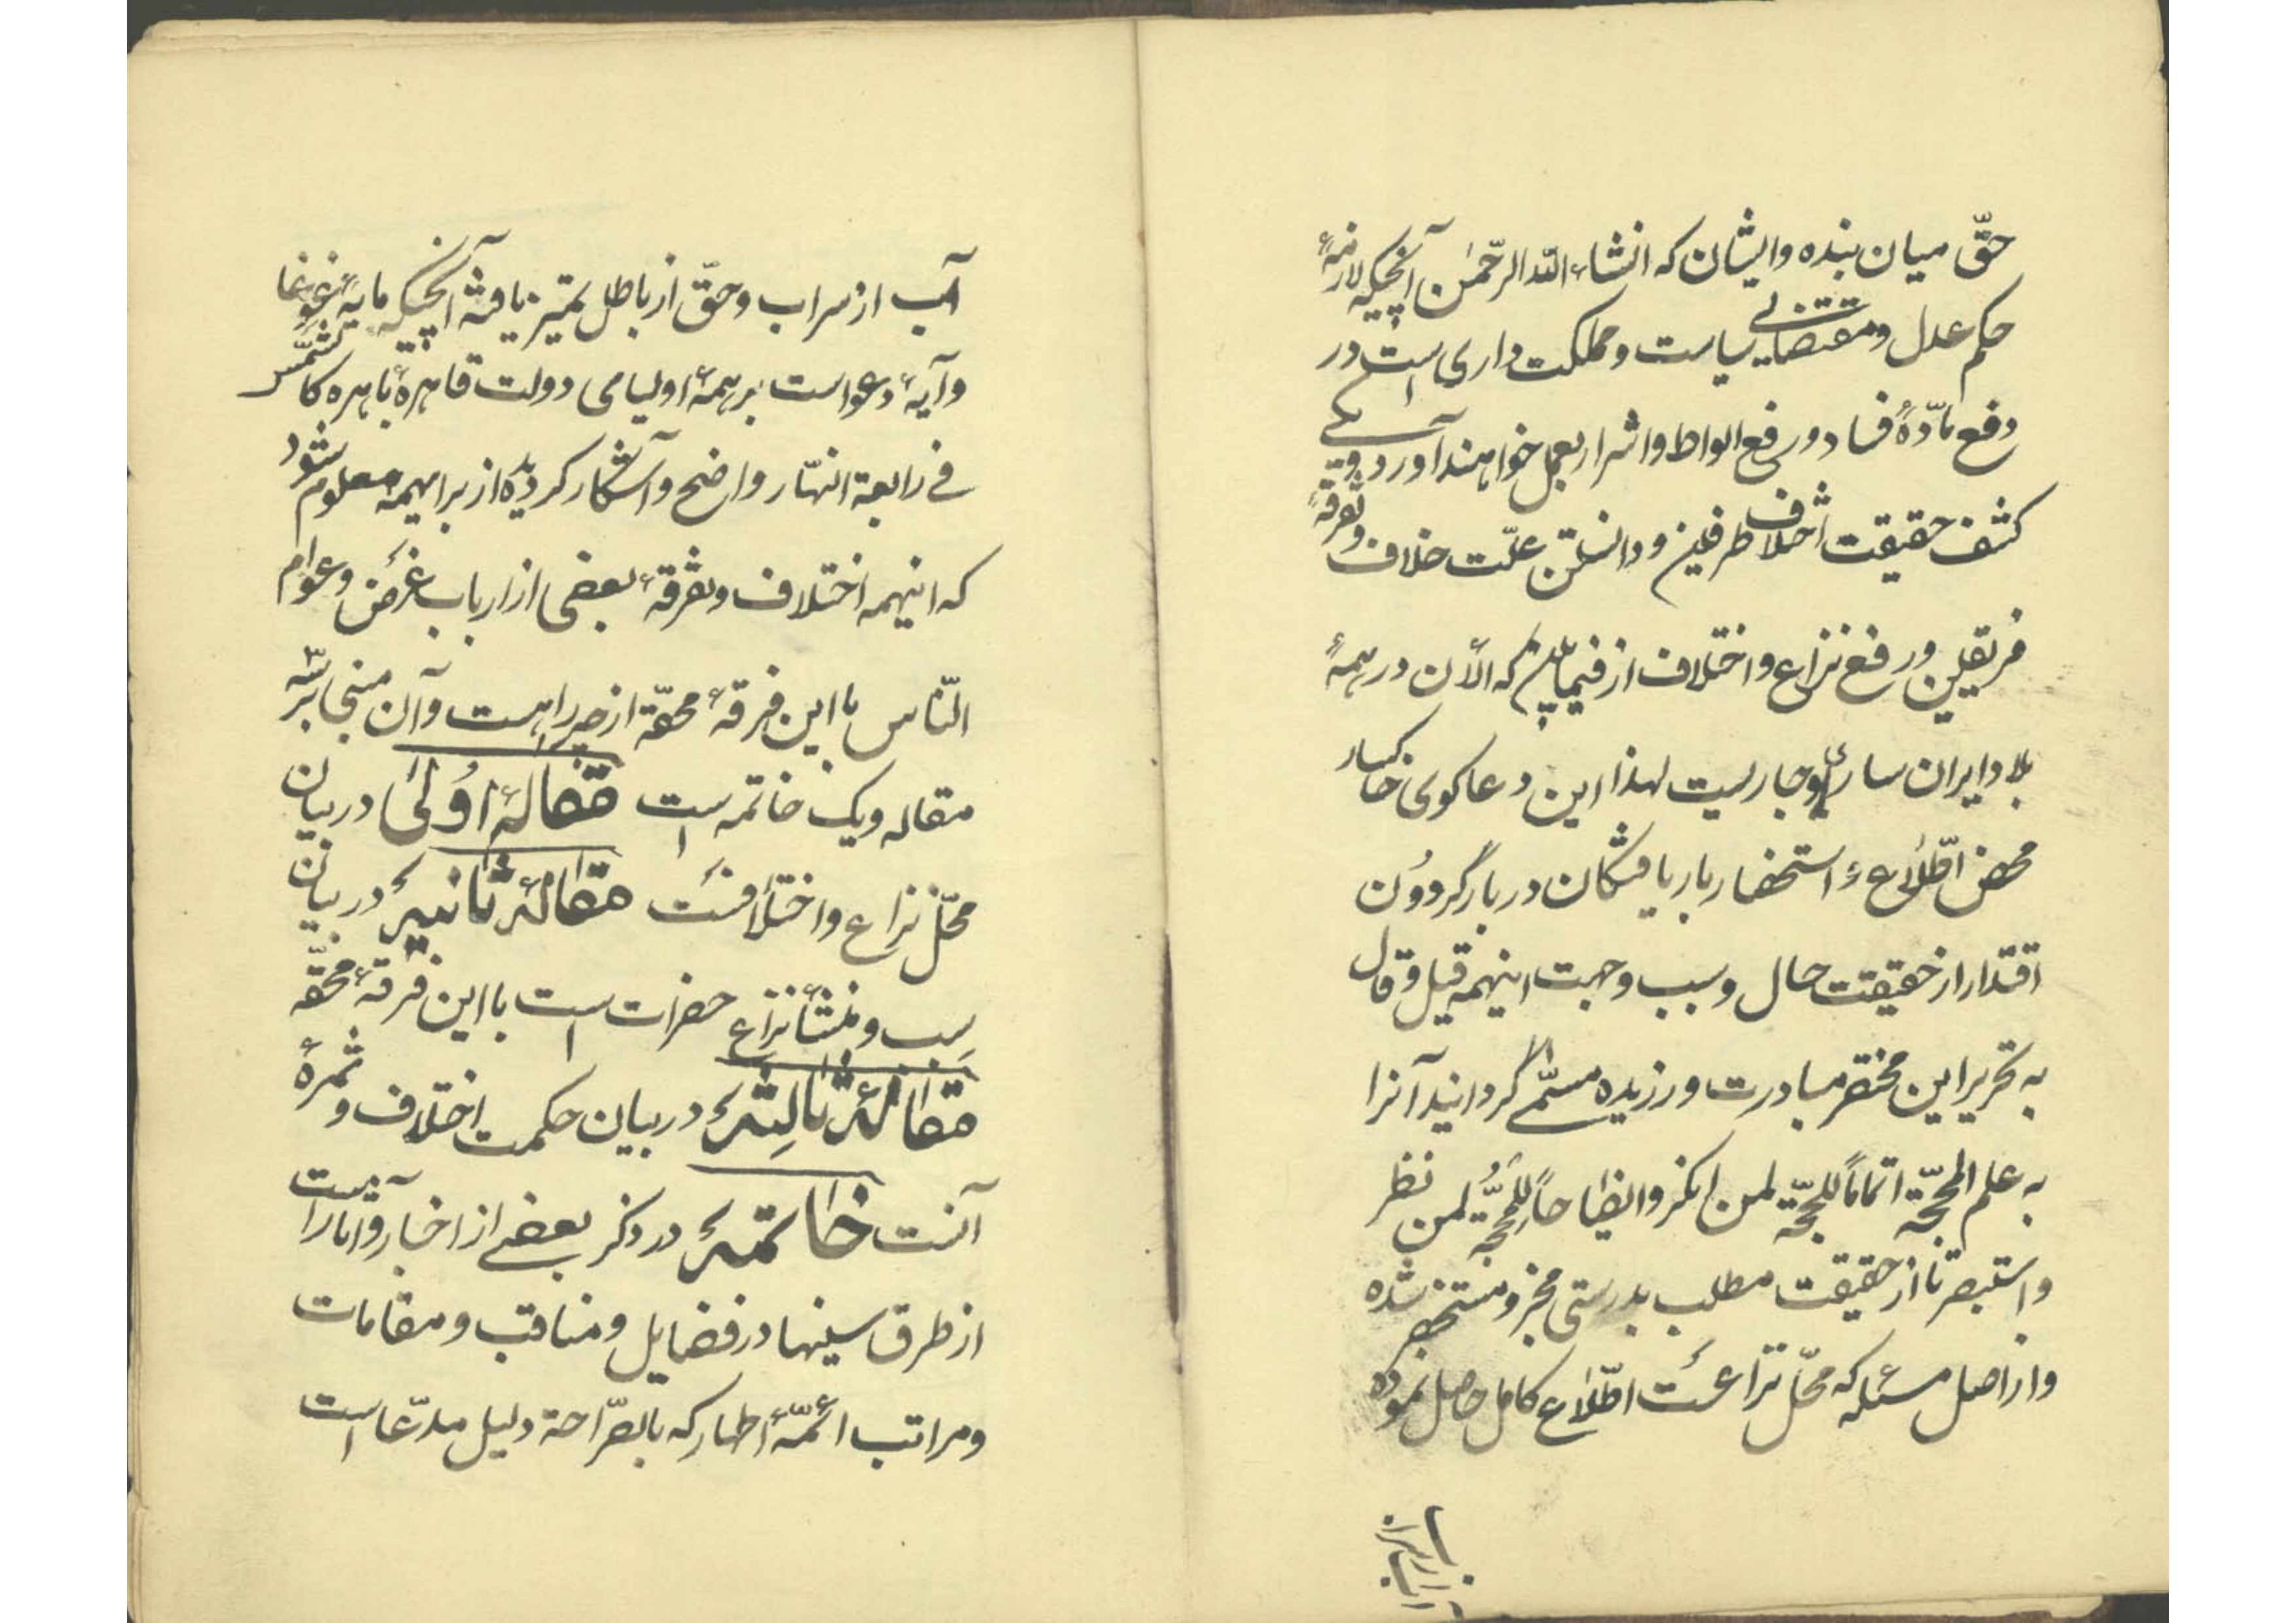 حقّ میان بنده وایشان که انشاء الله الرّحمٰن آنچیکه لازمهٔ
حکم عدل ومقتضایے سیاست ومملکت داری است در
دفع مادّهٔ فساد ورفع الواط واشرار بعمل خواهند آورد
کشف حقیقت اختلاف طرفین ودانستن علّت خلاف وتفرقهٔ
فریقین ورفع نزاع واختلاف از فیمابین که الآن در همهٔ
بلاد ایران ساری وجاریست لهذا این دعاکوی خاکسار
محض اطّلاع و استحضار باریافتکان دربار گردون
اقتدار از حقیقت حال وسبب وجهت اینهمه قیل وقال
به تحریر این مختصر مبادرت ورزیده مسمّے گردانید آنرا
به علم المحجّة اتماماً للحجّة لمن انکر وایضاحاً للمحجّة لمن نظر
واستبصر تا از حقیقت مطلب بدرستی مخبر ومستحضر شده
واز اصل مسئله که محلّ نزاعست اطّلاع کامل حاصل نموده
آب از سراب
آب از سراب وحقّ از باطل تمیز یافته آنچیکه مایهٔ غوغا
وآیهٔ دعواست بر همهٔ اولیای دولت قاهرهٔ باهره کالشّمس
فے رابعة النّهار واضح وآشکار کردیده از برا همه معلوم شود
که اینهمه اختلاف وتفرقهٔ بعضی از ارباب غرض وعوام
النّاس با این فرقهٔ محقّه از چه راهست وآن منجا بر سه
مقاله ویک خاتمه است مقالهٔ اولیٰ در بیان
محلّ نزاع واختلافست مقالهٔ ثانیه در بیان
سبب ومنشأ نزاع حضرات است با این فرقهٔ محقّه
مقالهٔ ثالثه در بیان حکمت اختلاف وثمرهٔ
آنست خاتمه در ذکر بعضے از اخبار وآثاراست
از طرق سنیها در فضایل ومناقب ومقامات
ومراتب ائمّهٔ اطهار که بالصّراحة دلیل مدّعا است